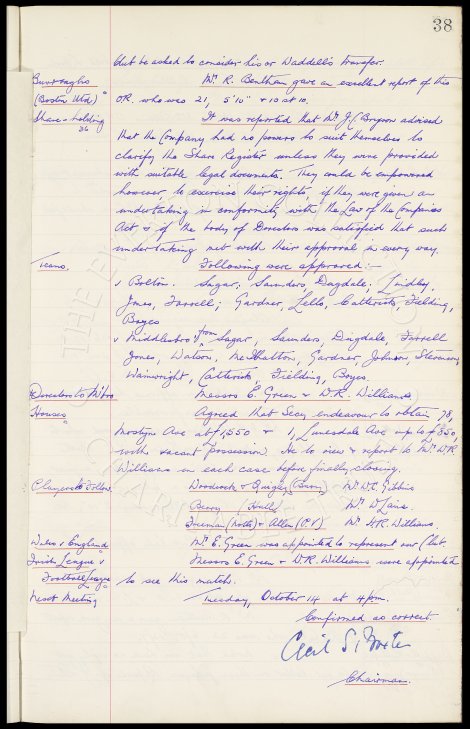 38
club be asked to consider his or Waddell's transfer.
Burroughs Mr. R. Bentham gave an excellent report of this
(Boston Utd) O.R. who was 21, 5'10" & 10 st 10.
Share-holding It was reported that Mr J.C. Bryson advised
that the Company had no powers to suit themselves to
clarify the Share Register unless they were provided
with suitable legal documents. They would be empowered
however, to exercise their rights, if they were given an
undertaking in conformity with the Law of the Companies
Act & if the body of Directors was satisfied that such
undertaking met with their approval in every way.
Teams. Following were approved:-
v Bolton. Sugar, Saunders, Dugdale; Lindley,
Jones, Farrell; Gardner, Lello, Catterick, Fielding,
Boyes
v Middlesbro from Sagar, Saunders, Dugdale, Farrell
Jones, Watson, McIlhatton, Gardner, Johnson, Stevenson,
Wainwright, Catterick, Fielding, Boyes.
Directors to M'bro Messrs E. Green & D.R. Williams
Houses Agreed that Secy endeavour to obtain 78,
Mostyn Ave at £1,550 & 1, Lunesdale Ave up to £850,
with vacant possession. He to view & report to Mr W.R
Williams in each case before finally closing.
Players to Follow Woodcock & Quigley (Bury) Mr W.C. Gibbins
Berry (Hull) Mr W. Laws.
Freeman (Notts) & Allen (P.V.) Mr H.R. Williams.
Wales v England Mr. E. Green was appointed to represent our Club.
Irish League v Messrs E. Green & D.R. Williams were appointed
Football League to see this match.
Next Meeting Tuesday, October 14 at 4 pm.
Confirmed as correct.
Cecil S. Baxter
Chairman.